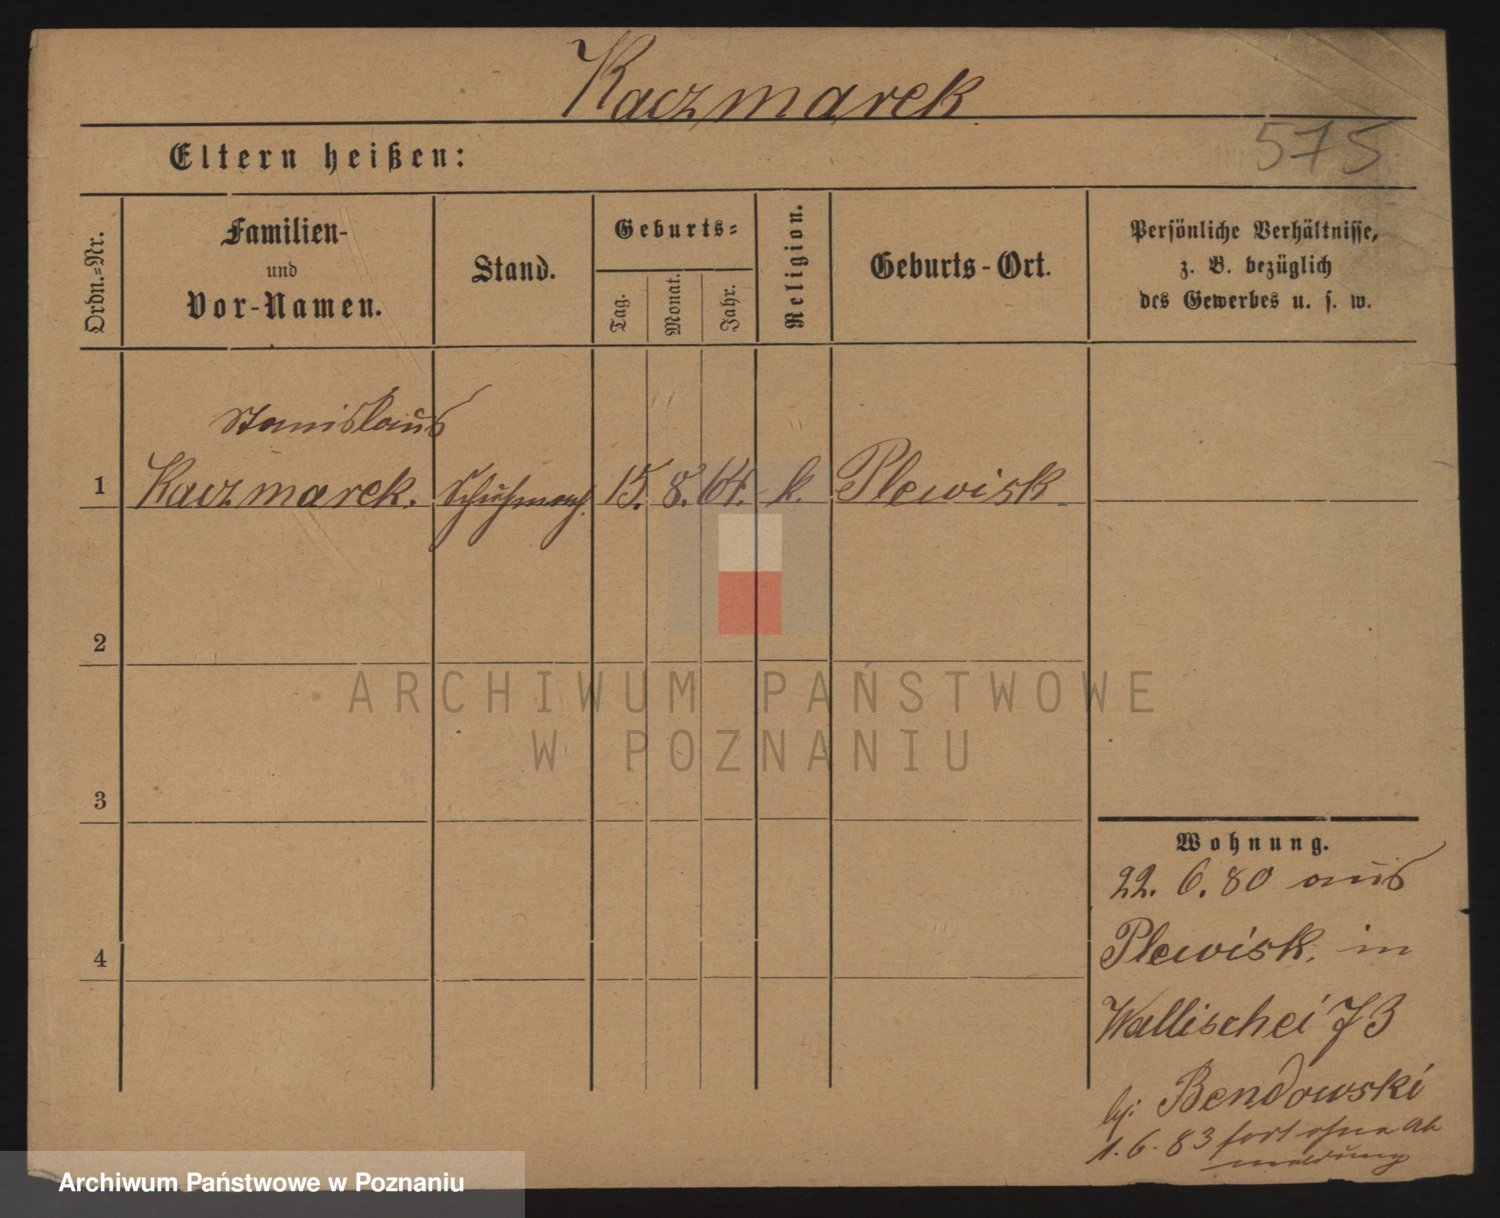 Kaczmarek
575
Eltern heißen:
Ordn.=Nr.
Familien-
und
Vor-Namen.
Stand.
Geburts=
Tag.
Monat.
Jahr.
Religion.
Geburts-Ort.
Persönliche Verhältnisse,
z. B. bezüglich
des Gewerbes u. s. w.
Stanislaus
1 Kaczmarek. Schuhmach. 15. 8. 64. k. Plewisk
2
ARCHIWUM PAŃSTWOWE
W POZNANIU
3
Wohnung.
22. 6. 80 aus
4 Plewisk. in
Wallischei 73
bei Bendowski
1. 6. 83 fort ohne Ab
meldung
Archiwum Państwowe w Poznaniu